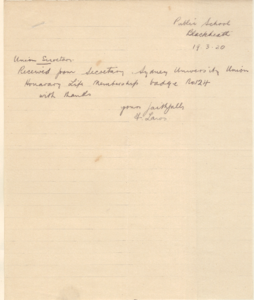 Public School
Blackheath
19.3.20
Union Secretary
Received from Secretary Sydney University Union
Honorary Life Membership badge No 24
with thanks
yours faithfully